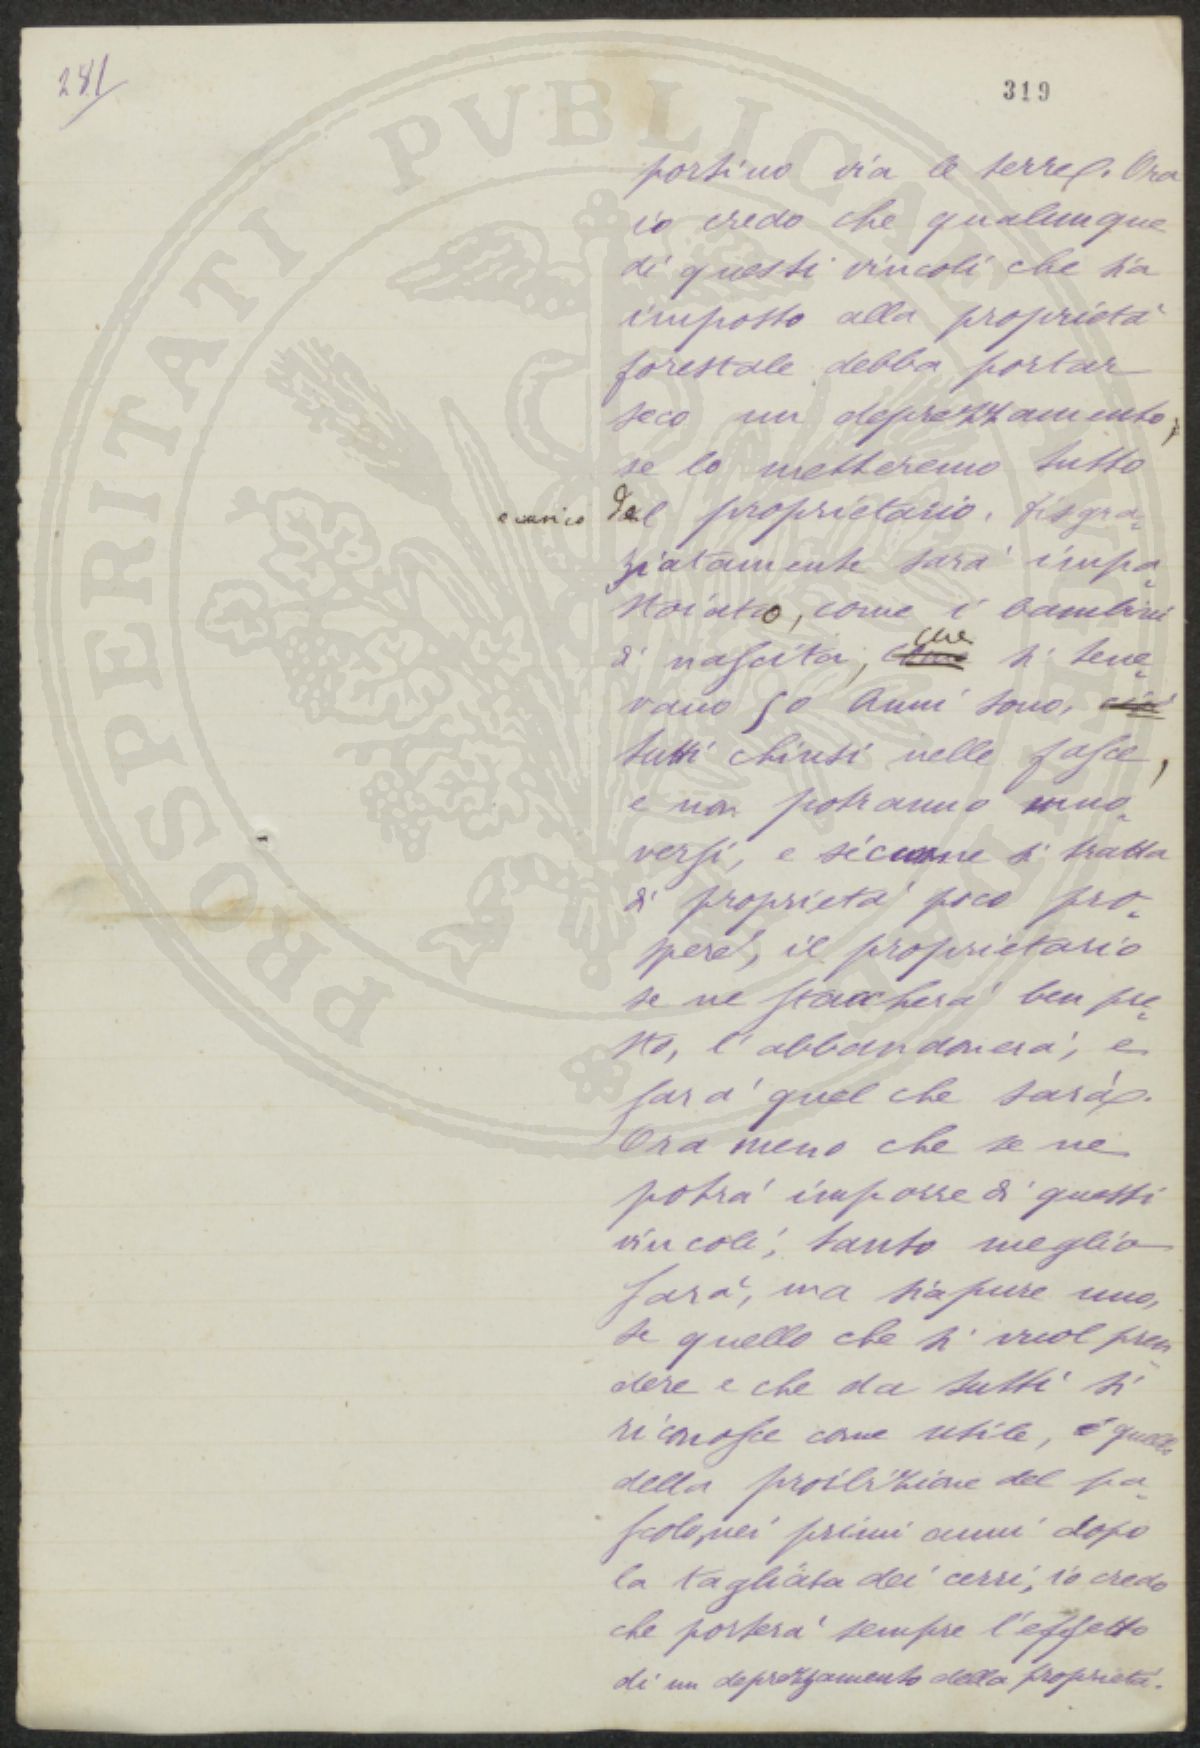 281
319
portino via le terre. Ora
io credo che qualunque
di questi vincoli che sia
imposto alla proprietà
forestale debba portar
seco un deprezzamento,
se lo metteremo tutto
a carico del proprietario. Disgra-
ziatamente sarà impa-
stoiato, come i bambini
di nascita, che si tene-
vano 50 anni sono,
tutti chiusi nelle fasce,
e non potranno muo-
versi, e siccome si tratta
di proprietà poco pro-
spere, il proprietario
se ne staccherà ben pre-
sto, l'abbandonerà, e
sarà quel che sarà.
Ora meno che se ne
potrà imporre di questi
vincoli, tanto meglio
sarà, ma sia pure uno,
se quello che si vuol pren-
dere e che da tutti si
riconosce come utile, è quello
della proibizione del pa-
scolo, nei primi anni dopo
la tagliata dei cerri, io credo
che porterà sempre l'effetto
di un deprezzamento della proprietà.
PROSPERITATI PVBLICAE